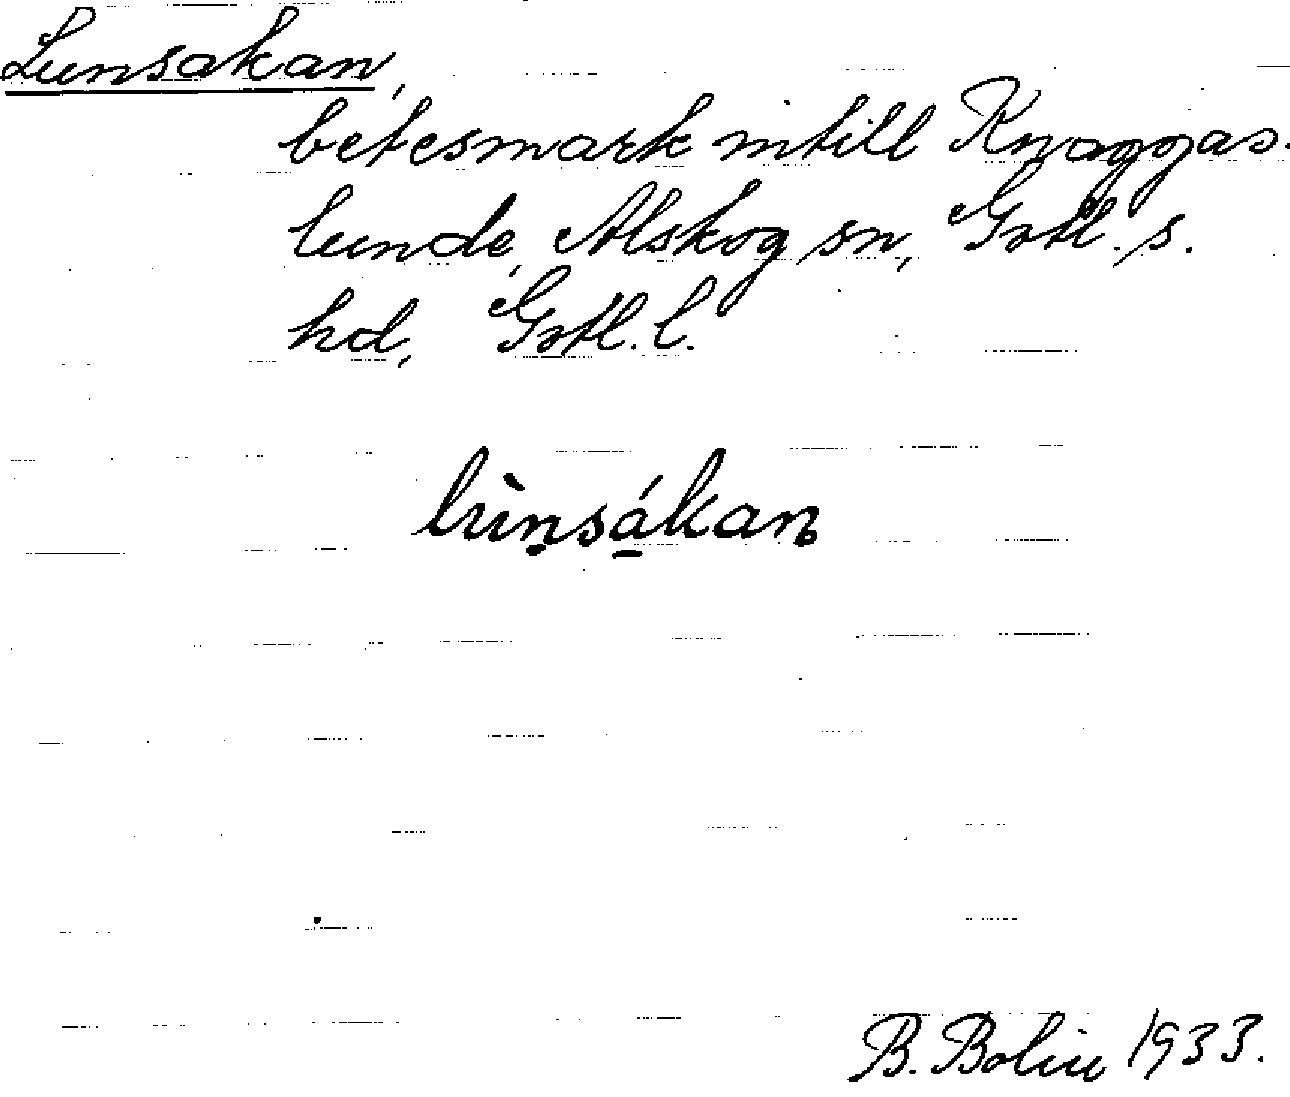 Lunsakan,
betesmark intill Knaggas-
lunde, Alskog sn, Gotl. s.
hd, Gotl. l.
lùn̥sá̱kan
B. Bolin 1933.